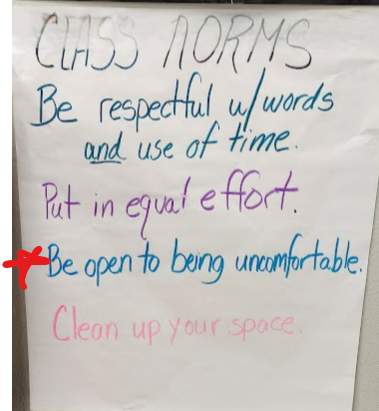 CLASS NORMS
Be respectful w/words
and use of time.
Put in equal effort.
Be open to being uncomfortable.
Clean up your space.